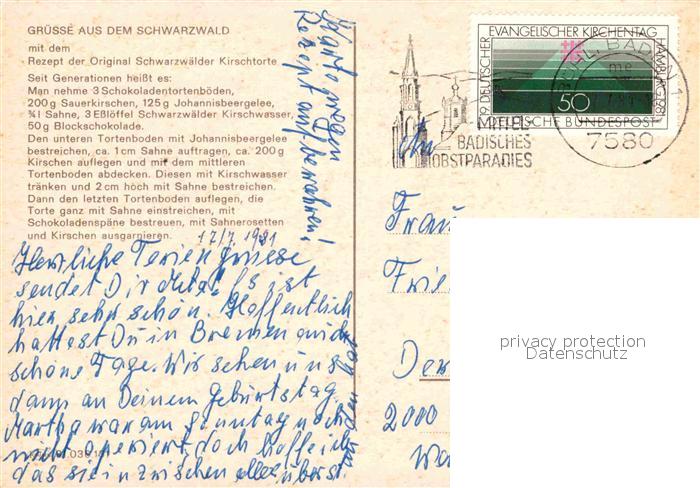 GRÜSSE AUS DEM SCHWARZWALD
mit dem
Rezept der Original Schwarzwälder Kirschtorte
Seit Generationen heißt es:
Man nehme 3 Schokoladentortenböden,
200 g Sauerkirschen, 125 g Johannisbeergelee,
¾ l Sahne, 3 Eßlöffel Schwarzwälder Kirschwasser,
50 g Blockschokolade.
Den unteren Tortenboden mit Johannisbeergelee
bestreichen, ca. 1 cm Sahne auftragen, ca. 200 g
Kirschen auflegen und mit dem mittleren
Tortenboden abdecken. Diesen mit Kirchwasser
tränken und 2 cm hoch mit Sahne bestreichen.
Dann den letzten Tortenboden auflegen, die
Torte ganz mit Sahne einstreichen, mit
Schokoladenspäne bestreuen, mit Sahnerosetten
und Kirschen ausgarnieren.
17/7. 1981
Herzliche Feriengrüsse
sendet Dir Es ist
hier sehr schön. Hoffentlich
hattest Du in Bremen auch
schöne Tage. Wir sehen uns
dann an Deinem Geburtstag.
Martha war am Sonntag noch
nicht operiert, doch hoffe ich
das sie inzwischen alles überst.
Karte wegen
Rezept aufbewahren!
19. DEUTSCHER
EVANGELISCHER KIRCHENTAG
HAMBURG 1981
50
DEUTSCHE BUNDESPOST
BADEN
1
me
7580
MITTEL
BADISCHES
OBSTPARADIES
An
Frau
Frie
2000
privacy protection
Datenschutz